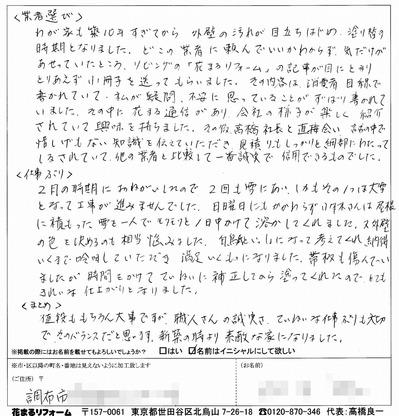 <業者選び>
わが家も築10年すぎてから 外壁の汚れが目立ちはじめ、塗り替え
時期となりました。どこの業者に頼んでいいかわからず、気だけが
あせっていたところ、リビングの「花まるリフォーム」の記事が目にとまり
とりあえず小冊子を送ってもらいました。その内容は、消費者目線で
書かれていて、私が疑問、不安に思っていることがずばり書かれて
いました。その中に花まる通信があり、会社の様子が楽しく紹介
されていて興味を持ちました。その后高橋社長と直接会い、お話の中で
惜しげもない知識を伝えていただき 見積りもしっかりと細部にわたって
しるされていて、他の業者と比較して一番誠実で 信用できるものでした。
<仕事ぶり>
2月の時期におねがいしたので 2回も雪にあい、しかもその1つは大雪
となって工事が進みませんでした。日曜日にもかかわらず
に積もった 雪を一人で もくもくと1日中かけて溶かしてくれました。又外壁
の色を決めるのも相当悩みました。 いっしょになって考えてくれ、納得
いくまで吟味していただき 満足いくものになりました。帯板も傷んでい
ましたが 時間をかけて ていねいに補正してから塗ってくれたので、とても
きれいな仕上がりとなりました。
<まとめ>
値段ももちろん大事ですが、職人さんの誠実さ、ていねいな仕事ぶりも大切
で そのバランスだと思います。新築の時より 素敵な家になりました。
※掲載の際にはお名前を載せてもよろしいでしょうか? □はい ☑名前はイニシャルにして欲しい
※市・区以降の町名・番地は見えないように加工致します
(ご住所) (お名前)
調布市
花まるリフォーム 〒157-0061 東京都世田谷区北烏山7-26-18 ☎0120-870-346 代表:高橋良一